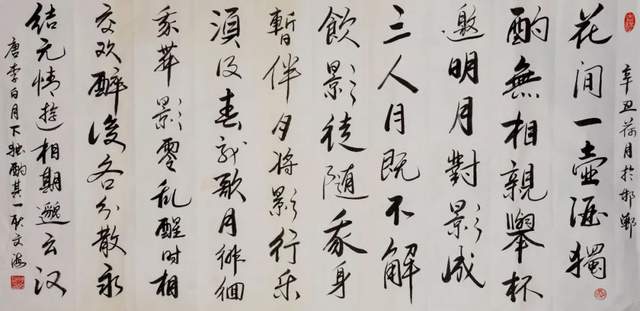 辛丑荷月於邯鄲
花間一壺酒獨
酌無相親舉杯
邀明月對影成
三人月既不解
飲影徒隨我身
暫伴月將影行乐
須及春我歌月徘徊
我舞影零乱醒时相
交欢醉後各分散永
結无情遊相期邈云汉
唐李白月下独酌其一